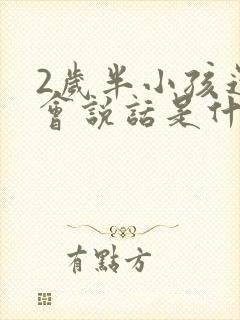 2歲半小孩
會說話是什
有點方